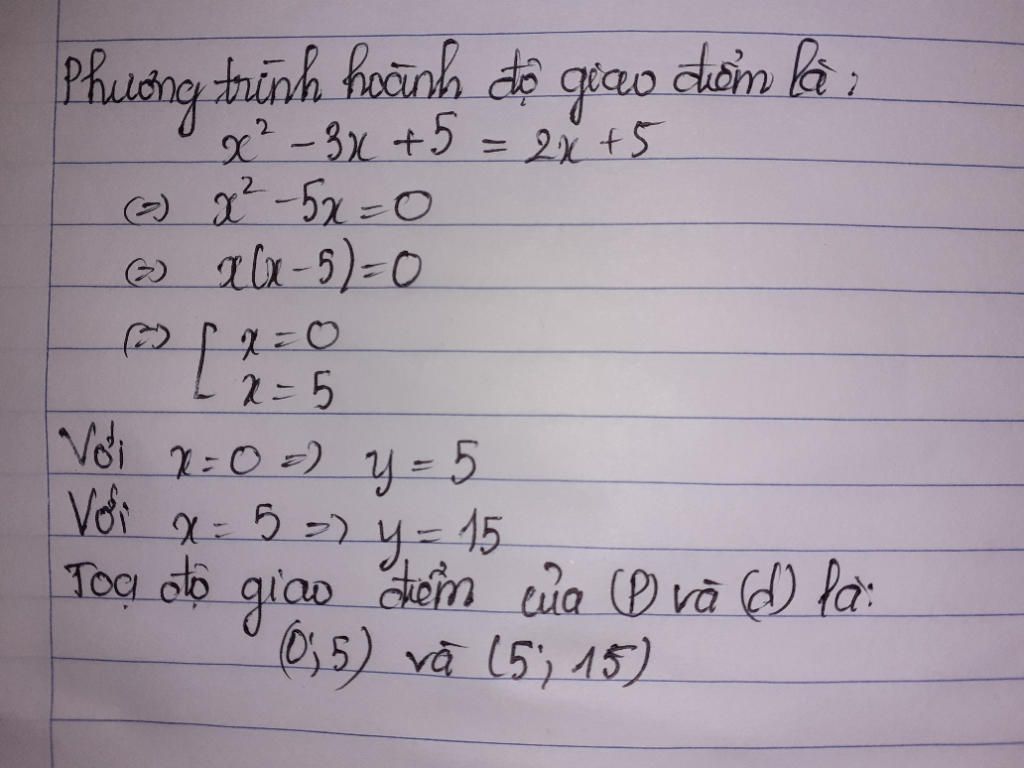 Phương trình hoành độ giao điểm là:
x² - 3x + 5 = 2x + 5
<=> x² - 5x = 0
<=> x(x - 5) = 0
<=> [ x = 0
x = 5
Với x = 0 => y = 5
Với x = 5 => y = 15
Toạ độ giao điểm của (P) và (d) là:
(0; 5) và (5; 15)